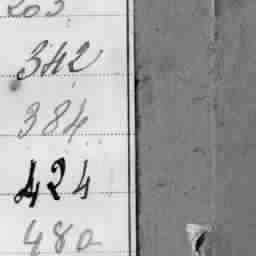 203
342
384
424
480